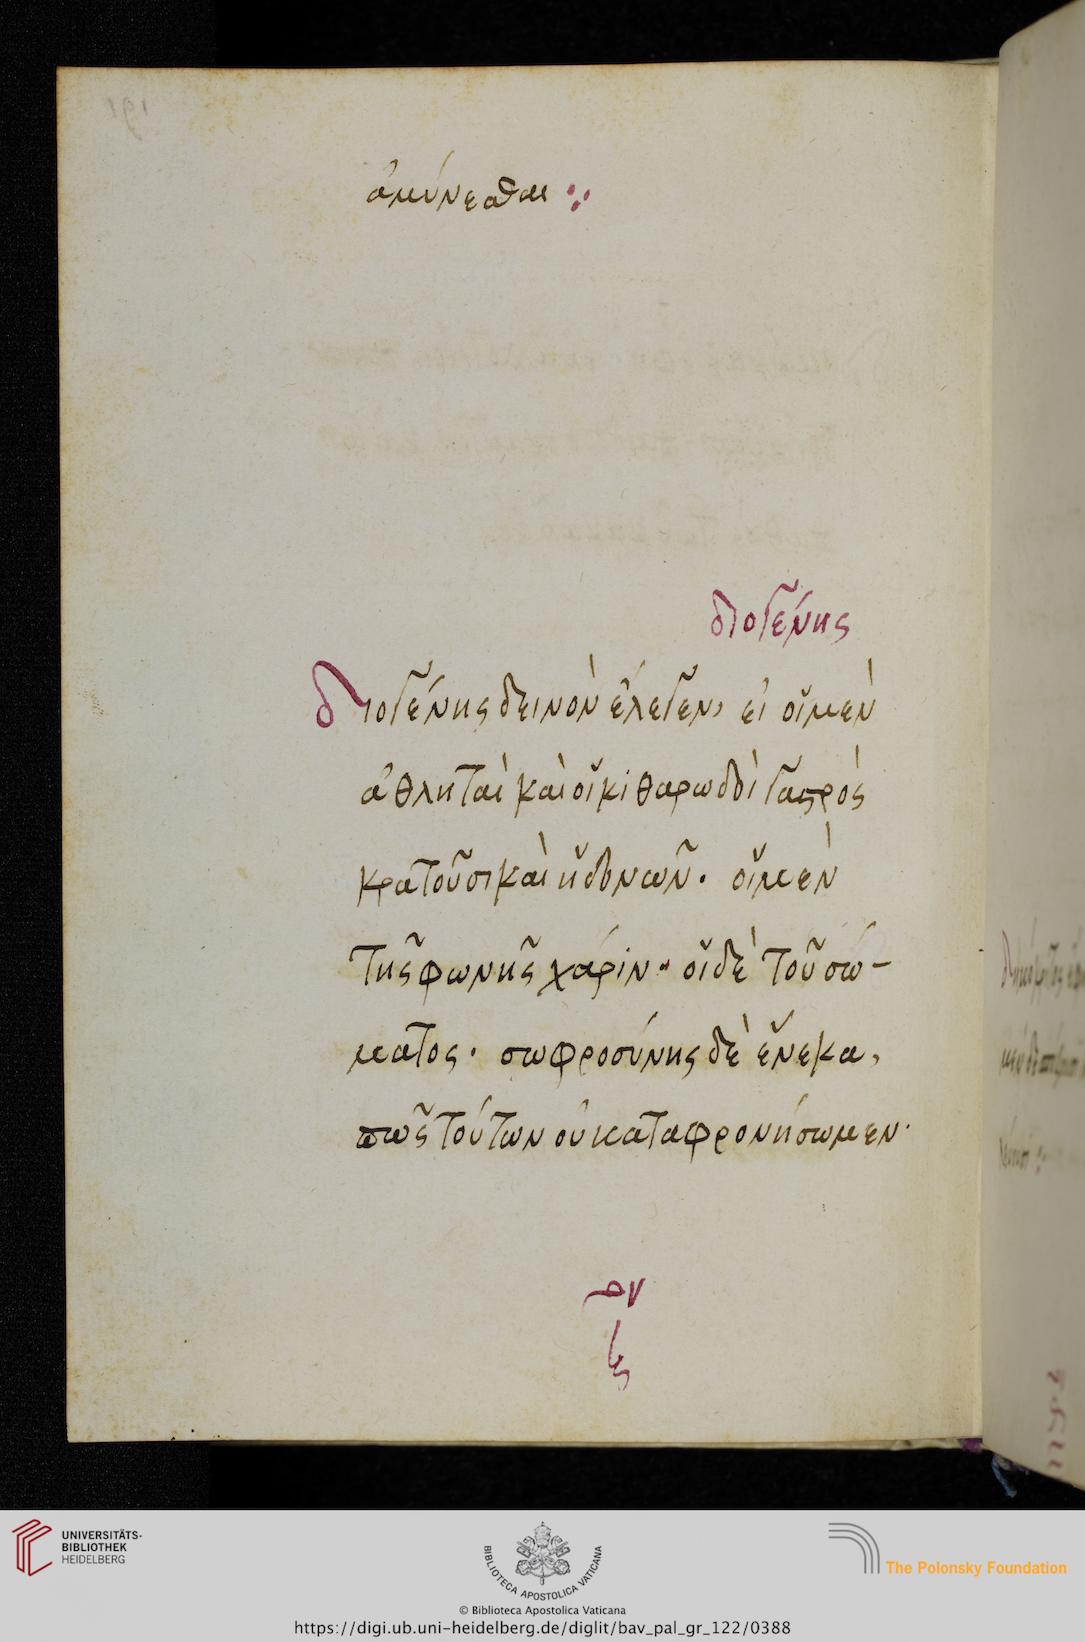 ἀμύνεσθαι :·
διογένης
διογένης δεινὸν ἔλεγεν, εἰ οἵ μὲν
ἀθληταὶ καὶ οἵ κιθαρωδοὶ γαστρὸς
κρατοῦσι καὶ ἥδονῶν. οἵ μὲν
τῆς φωνῆς χάριν. οἵ δὲ τοῦ σώ-
ματος. σωφροσύνης δὲ ἕνεκα,
πῶς τούτων οὐ καταφρονήσωμεν.
UNIVERSITÄTS-
BIBLIOTHEK
HEIDELBERG
BIBLIOTECA APOSTOLICA VATICANA
The Polonsky Foundation
© Biblioteca Apostolica Vaticana
https://digi.ub.uni-heidelberg.de/diglit/bav_pal_gr_122/0388